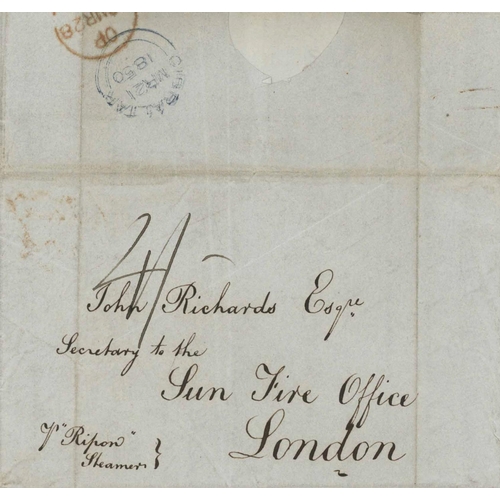 OP
MR 28
GIBRALTAR
MR 21
1850
John Richards Esqre
Secretary to the
Sun Fire Office
London
p "Ripon"
Steamer